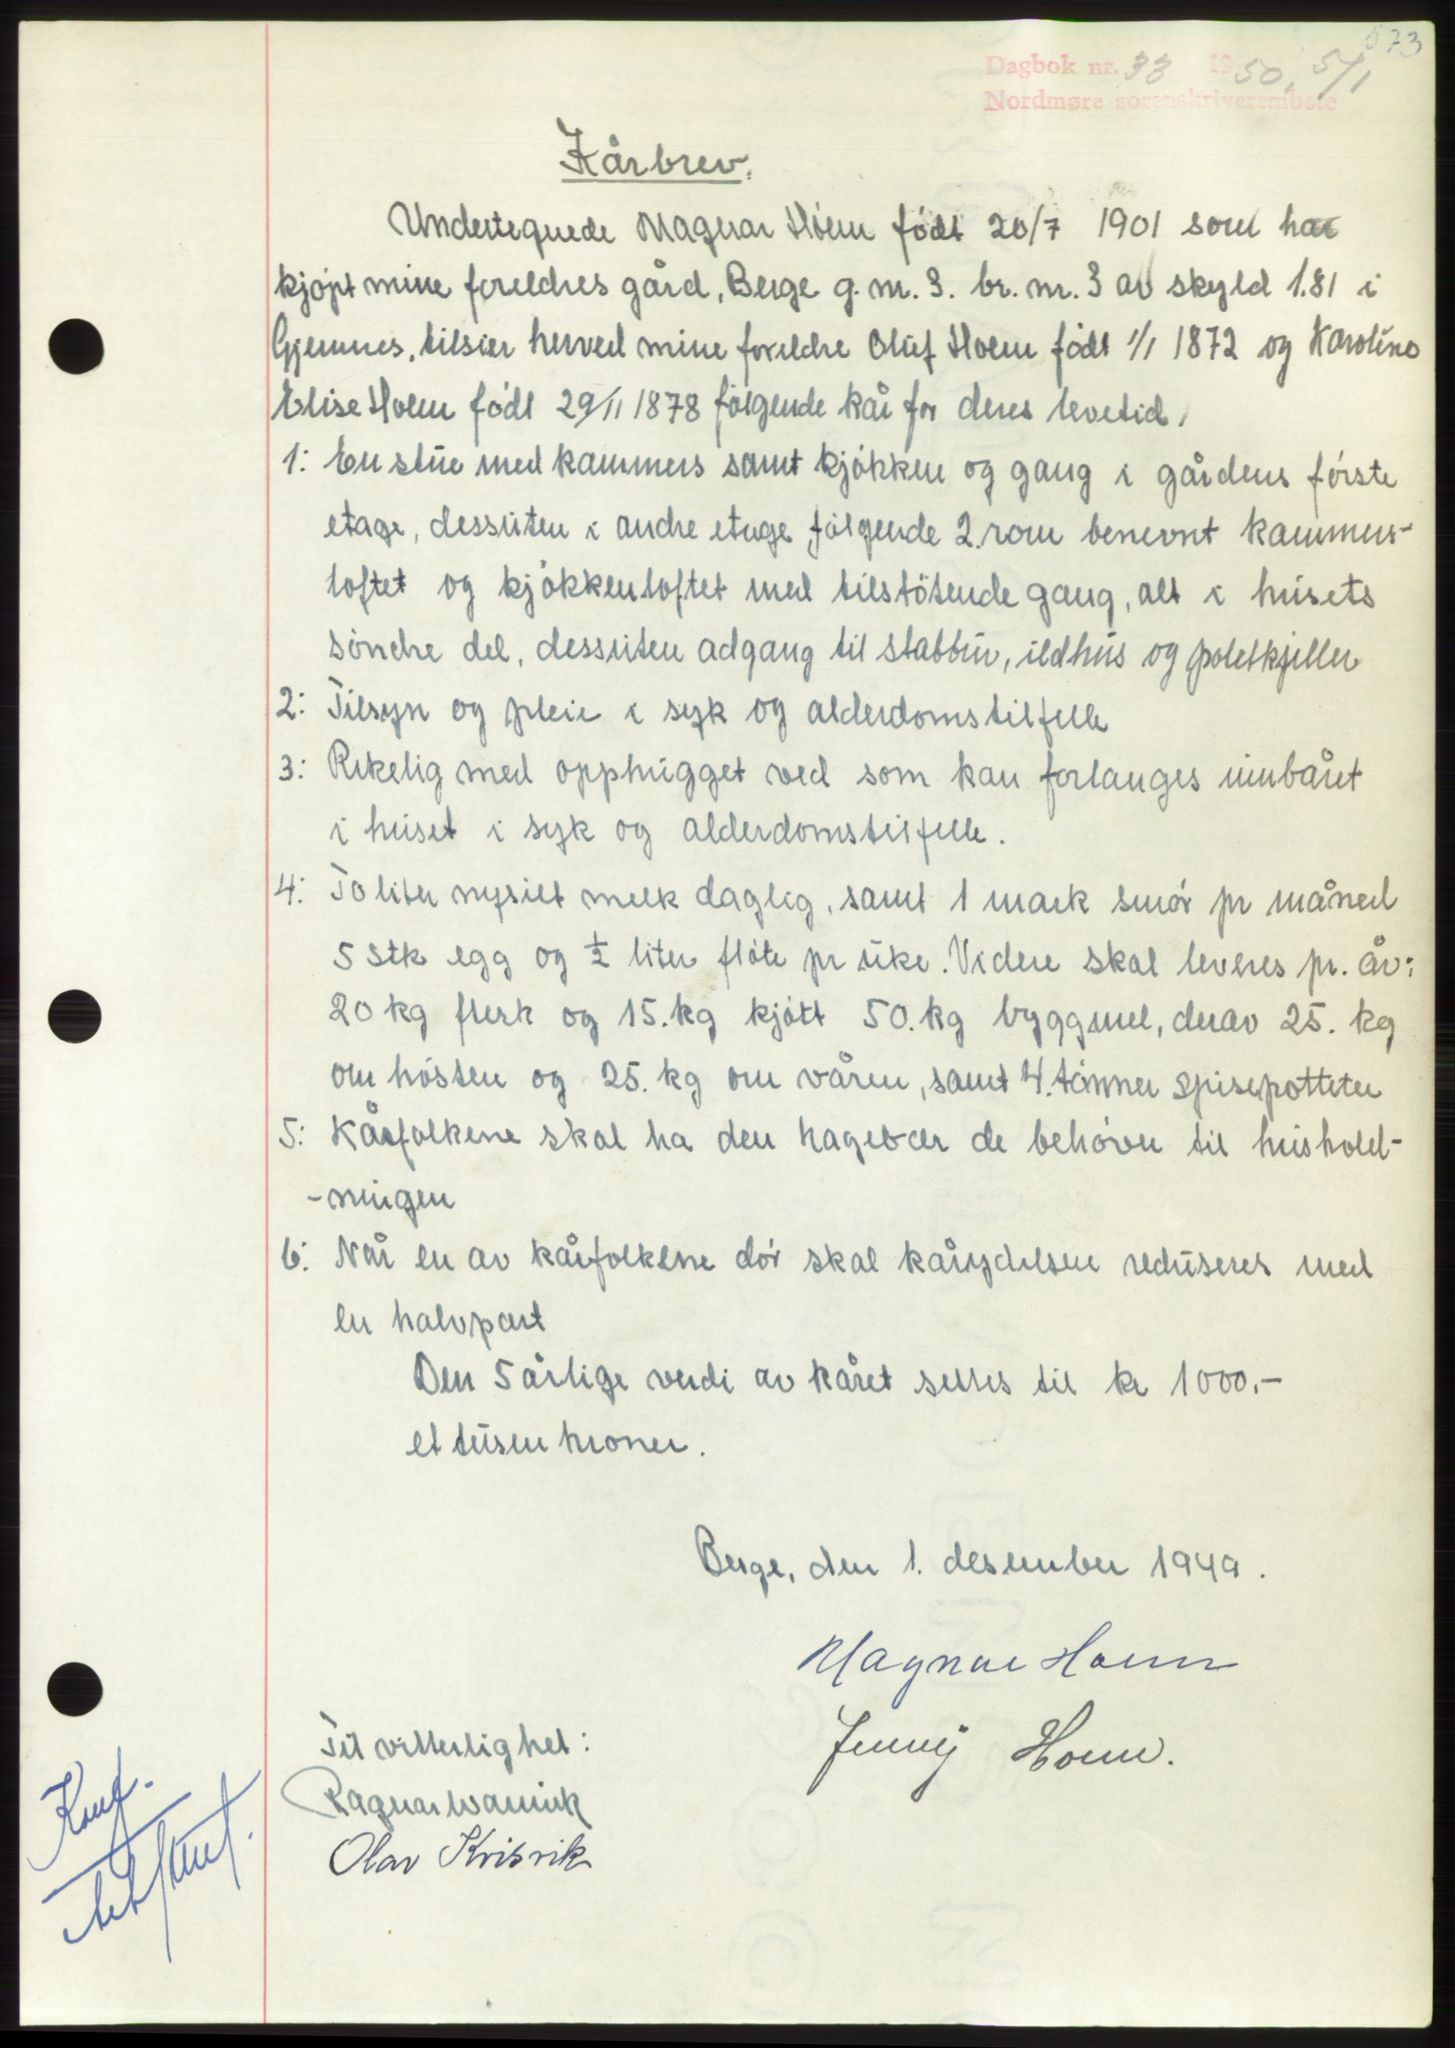 573
Dagbok nr. 33 1950, 5/1
Nordmøre sorenskriverembete
Kårbrev.
Undertegnede Magnar Hoem født 20/7 1901 som har
kjøpt mine foreldres gård, Berge g. nr. 3. br. nr. 3 av skyld 1.81 i
Gjemnes, tilsier herved mine foreldre Oluf Hoem født 1/1 1872 og Karoline
Elise Hoem født 29/11 1878 følgende kår for deres levetid,
1: En stue med kammers samt kjøkken og gang i gårdens første
etage, dessuten i andre etage følgende 2. rom benevnt kammers-
loftet og kjøkkenloftet med tilstøtende gang, alt i husets
søndre del, dessuten adgang til stabbur, ildhus og potetkjeller
2: Tilsyn og pleie i syk og alderdomstilfelle
3: Rikelig med opphugget ved som kan forlanges innbåret
i huset i syk og alderdomstilfelle.
4: To liter nysilt melk daglig, samt 1 mark smør pr måned
5 stk egg og ½ liter fløte pr uke. Videre skal leveres pr. år:
20 kg flesk og 15. kg kjøtt 50. kg byggmel, derav 25. kg
om høsten og 25. kg om våren, samt 4. tønner spisepotteter
5: Kårfolkene skal ha den hagebær de behøver til hushold-
-ningen
6: Når en av kårfolkene dør skal kårydelsen reduseres med
en halvpart
Den 5 årlige verdi av kåret settes til kr 1000.-
et tusen kroner.
Berge, den 1. desember 1949.
Magnar Hoem
Jenny Hoem.
Til vitterlighet:
Ragnar
Olav Krisvik
Konf.